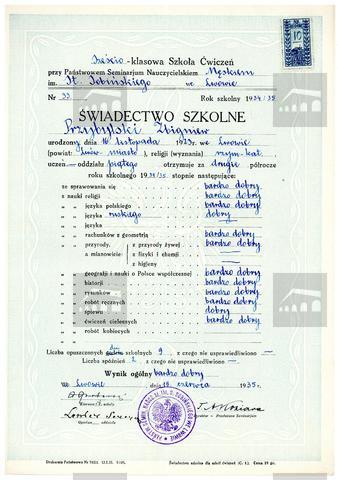 Sześcio-klasowa Szkoła Ćwiczeń
10
przy Państwowem Seminarjum Nauczycielskiem Męskiem
im. St. Sobińskiego we Lwowie
Nr 33 Rok szkolny 1934/35
ŚWIADECTWO SZKOLNE
Przybylski Zbigniew
urodzony dnia 16 listopada 1923 r. we Lwowie
(powiat: Lwów miasto), religji (wyznania) rzym-kat.
uczeń oddziału piątego otrzymuje za drugie półrocze
roku szkolnego 1934/35 stopnie następujące:
ze sprawowania się bardzo dobry
z nauki religji bardzo dobry
języka polskiego bardzo dobry
języka ruskiego dobry
języka —
rachunków z geometrją bardzo dobry
przyrody, z przyrody żywej bardzo dobry
a mianowicie z fizyki i chemji —
z higjeny —
geografji i nauki o Polsce współczesnej bardzo dobry
historji bardzo dobry
rysunków bardzo dobry
robót ręcznych bardzo dobry
śpiewu dobry
ćwiczeń cielesnych bardzo dobry
robót kobiecych —
Liczba opuszczonych dni szkolnych 9, z czego nie usprawiedliwiono —
Liczba spóźnień 2, z czego nie usprawiedliwiono —
Wynik ogólny bardzo dobry
we Lwowie dnia czerwca 1935 r.
Kierown. szkoły
Opiekun oddziału
Dyrektor Państwowego Seminarjum